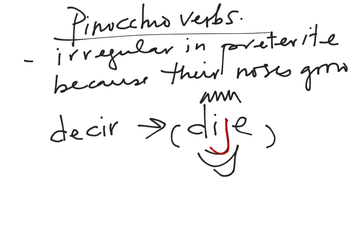 Pinocchio verbs.
- irregular in preterite
because their noses grow
decir → (dije)